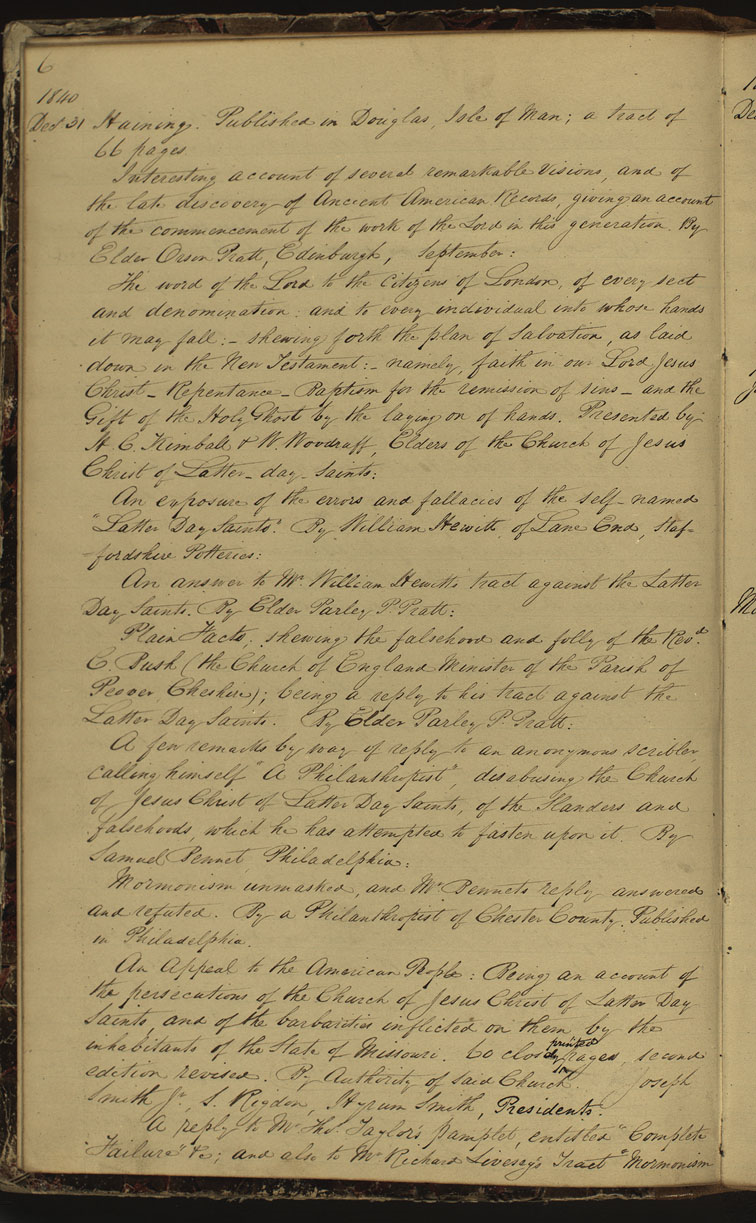 6
1840
Dec 31 Haining. Published in Douglas, Isle of Man; a tract of
66 pages
Interesting account of several remarkable Visions, and of
the late discovery of Ancient American Records, giving an account
of the commencement of the work of the Lord in this generation. By
Elder Orson Pratt, Edinburgh, September:
The word of the Lord to the Citizens of London, of every sect
and denomination: and to every individual into whose hands
it may fall:- shewing forth the plan of Salvation, as laid
down in the New Testament:- namely, faith in our Lord Jesus
Christ - Repentance - Baptism for the remission of sins - and the
Gift of the Holy Ghost by the laying on of hands. Presented by
H. C. Kimball & W. Woodruff, Elders of the Church of Jesus
Christ of Latter-day-Saints:
An exposure of the errors and fallacies of the self-named
"Latter Day Saints". By William Hewitt, of Lane End, Staf-
fordshire Potteries:
An answer to Mr. William Hewitt's tract against the Latter
Day Saints. By Elder Parley P. Pratt:
Plain Facts, shewing the falsehood and folly of the Revd.
C. Bush (the Church of England Minister of the Parish of
Peover, Cheshire); being a reply to his tract against the
Latter Day Saints. By Elder Parley P. Pratt:
A few remarks by way of reply to an anonymous scribler,
calling himself "A Philanthropist", disabusing the Church
of Jesus Christ of Latter Day Saints, of the Slanders and
falsehoods, which he has attempted to fasten upon it. By
Samuel Bennet, Philadelphia:
Mormonism unmasked, and Mr. Bennets reply answered
and refuted. By a Philanthropist of Chester County. Published
in Philadelphia.
An Appeal to the American People: Being an account of
the persecutions of the Church of Jesus Christ of Latter Day
Saints, and of the barbarities inflicted on them by the
printed
inhabitants of the State of Missouri. 60 closely pages, second
edition revised. By Authority of said Church. Joseph
Smith Jr, S. Rigdon, Hyrum Smith, Presidents:
A reply to Mr. Thos. Taylor's Pamplet, entitled "Complete
Failure" &c; and also to Mr Richard Livesey's Tract "Mormonism